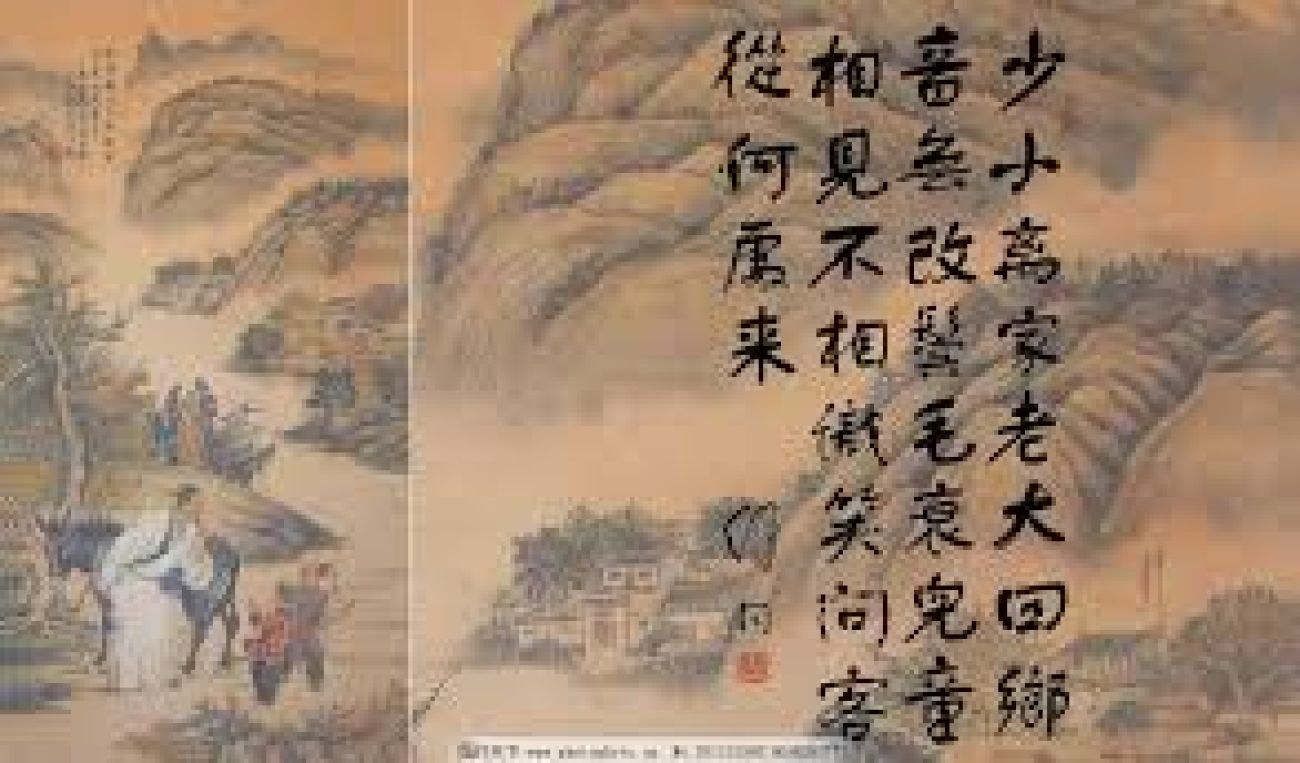 少小离家老大回鄉
音無改鬢毛衰兒童
相見不相識笑問客
從何處来